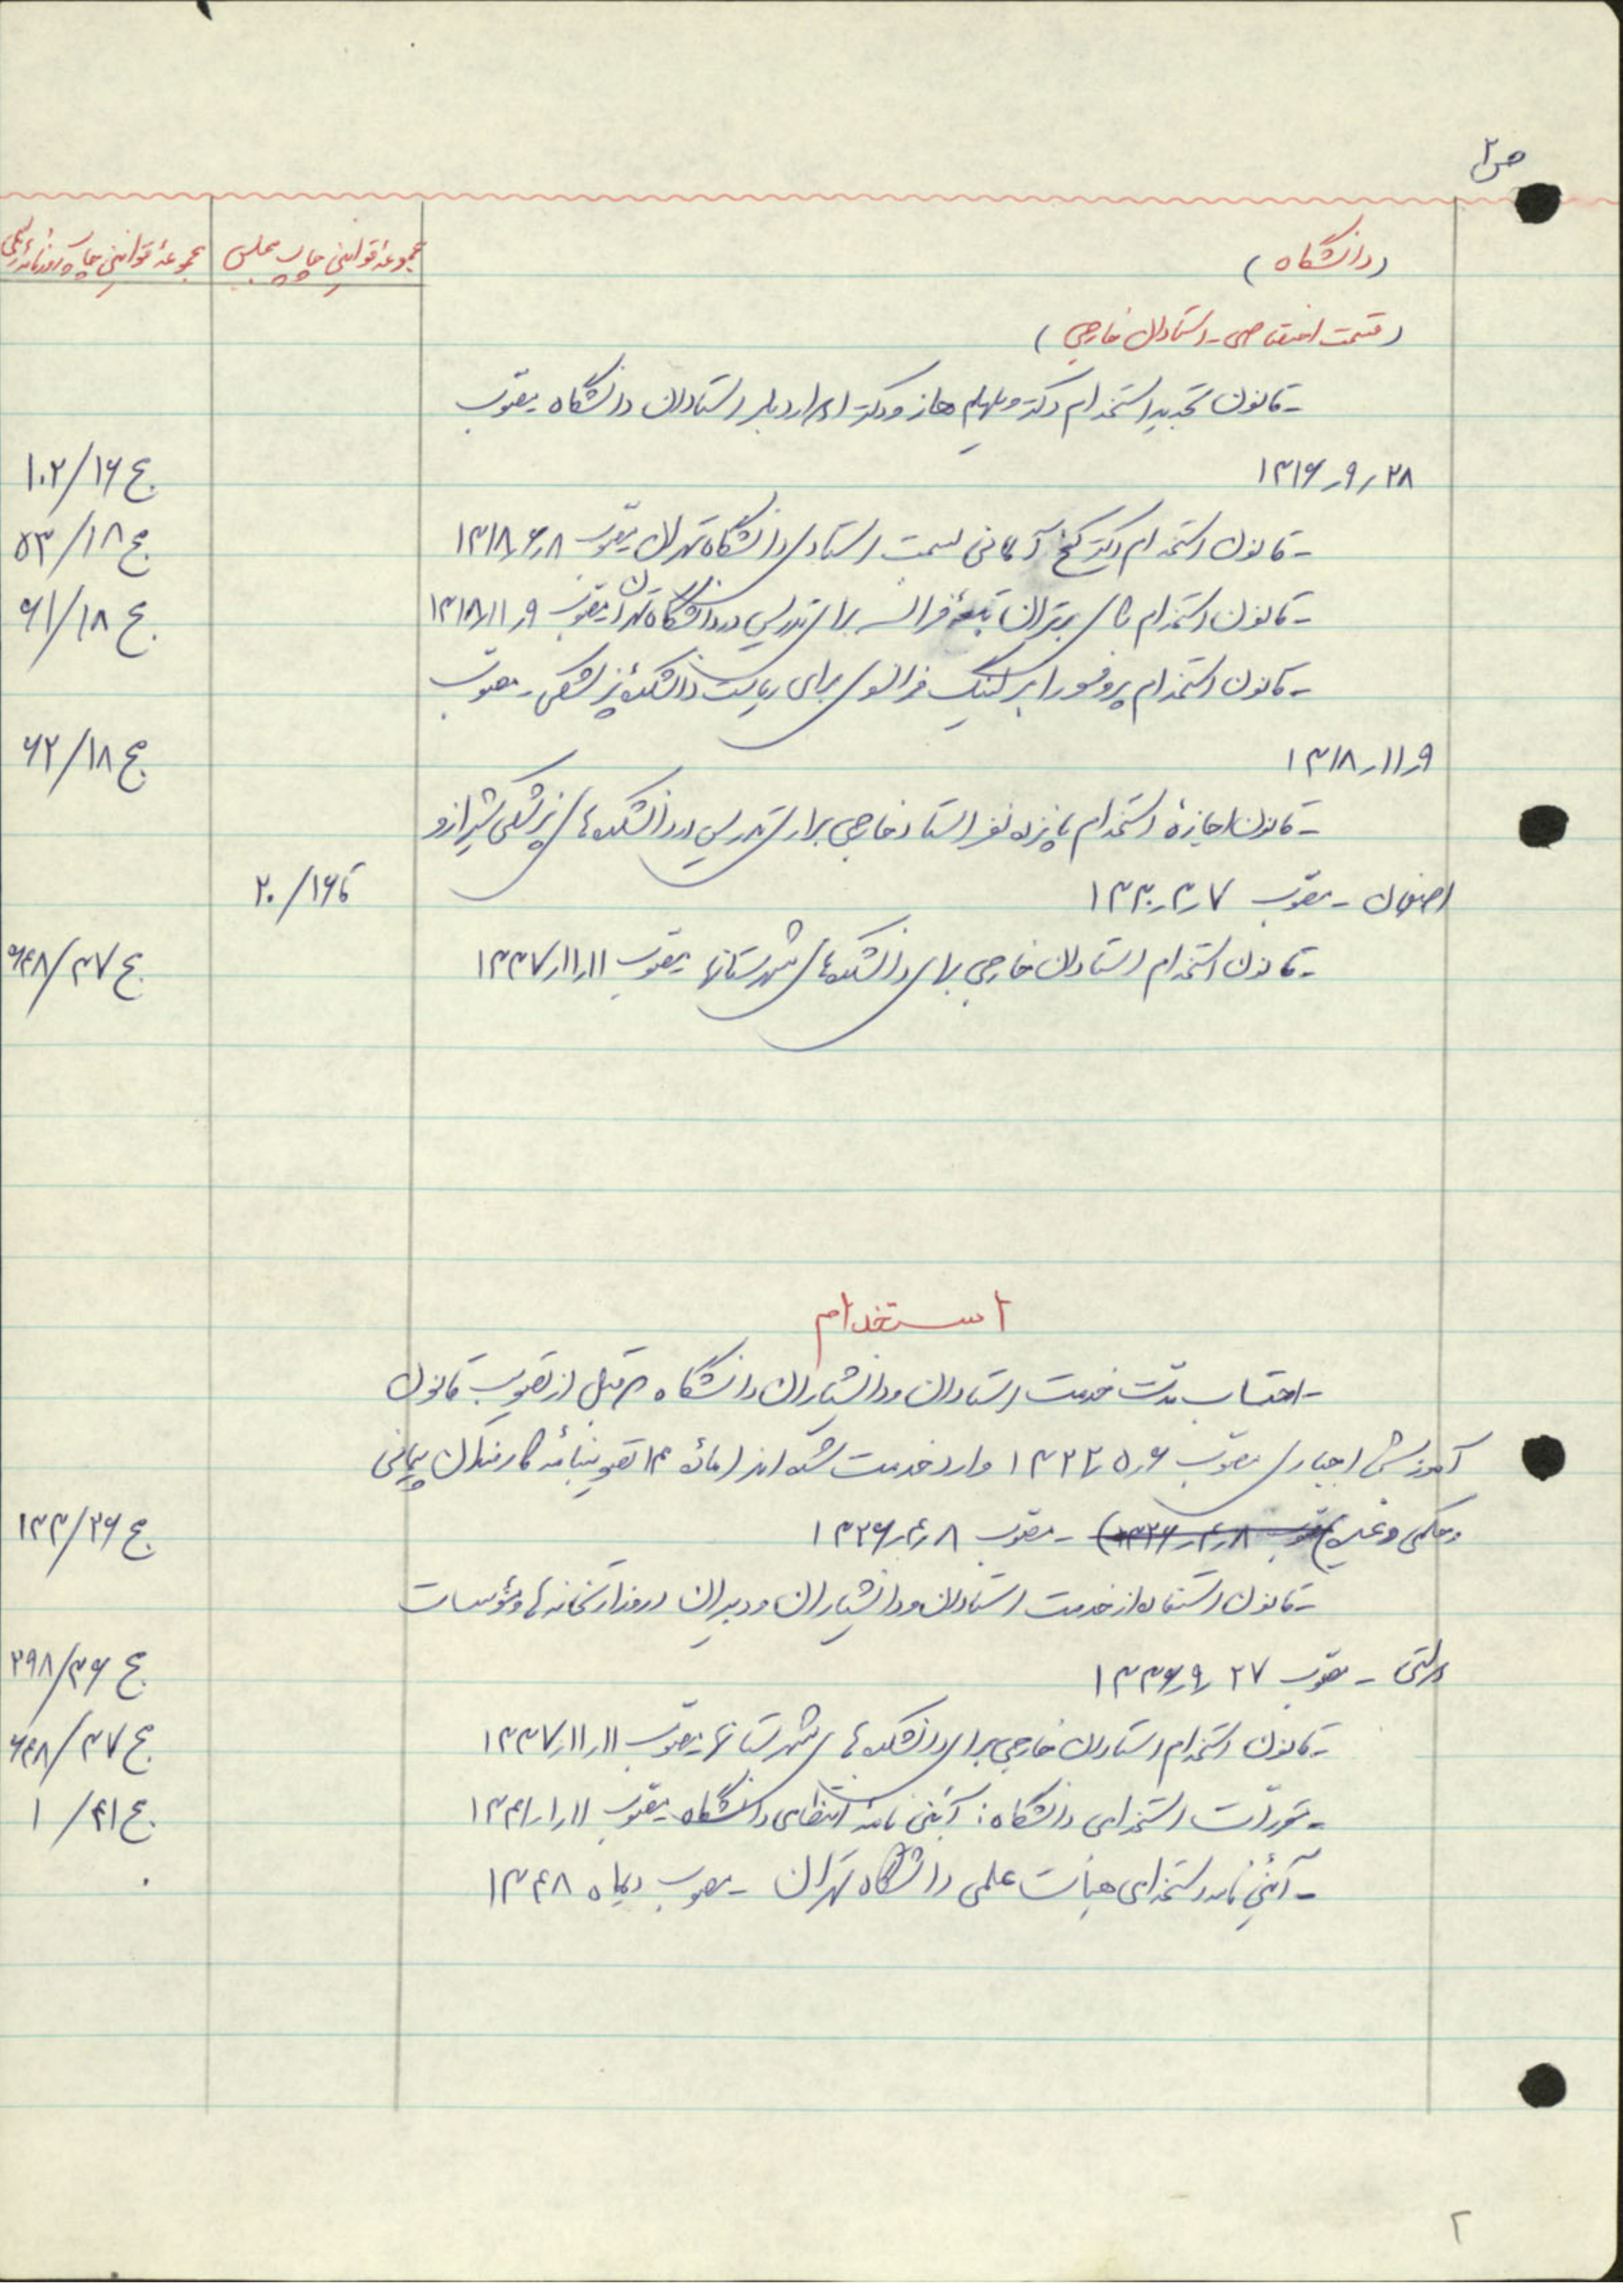 ص ۲
(دانشگاه)
مجموعهٔ قوانین چاپ مجلس
مجموعهٔ قوانین چاپ روزنامه رسمی
(قسمت اختصاصی - استادان خارجی)
- قانون تجدید استخدام دکتر ویلهلم هاز و دکتر ادوارد بلر استادان دانشگاه مصوب
۲۸ر۹ر۱۳۱۶ ج ۱۶/۱۰۲
- قانون استخدام دکتر کخ آلمانی بسمت استادی دانشگاه تهران مصوب ۸ر۶ر۱۳۱۸ ج ۱۸/۵۳
- قانون استخدام برتران تبعهٔ فرانسه برای تدریس در دانشگاه تهران مصوب ۹ر۱۱ر۱۳۱۸ ج ۱۸/۶۱
- قانون استخدام پروفسور ابرلینگ فرانسوی برای ریاست دانشکدهٔ پزشکی - مصوب
۹ر۱۱ر۱۳۱۸ ج ۱۸/۶۲
- قانون اجازهٔ استخدام پانزده نفر استاد خارجی برای تدریس در دانشکده‌های پزشکی شیراز و
اصفهان - مصوب ۷ر۳ر۱۳۳۰ ق ۱۶/۲۰
- قانون استخدام استادان خارجی برای دانشکده‌های شهرستانها مصوب ۱۱ر۱۱ر۱۳۳۷ ج ۳۷/۶۴۸
استخدام
- احتساب مدت خدمت استادان و دانشیاران دانشگاه که قبل از تصویب قانون
آموزش اجباری مصوب ۶ر۵ر۱۳۲۲ وارد خدمت شده‌اند (مادهٔ ۱۴ تصویبنامه کارمندان پیمانی
و حکمی و غیره) مصوب ۸ر۴ر۱۳۲۶) - مصوب ۸ر۴ر۱۳۲۶ ج ۲۶/۱۳۳
- قانون استفاده از خدمت استادان و دانشیاران و دبیران در وزارتخانه‌ها و مؤسسات
دولتی - مصوب ۲۷ر۹ر۱۳۳۶ ج ۳۶/۲۹۸
- قانون استخدام استادان خارجی برای دانشکده‌های شهرستانها مصوب ۱۱ر۱۱ر۱۳۳۷ ج ۳۷/۶۴۸
- مقررات استخدامی دانشگاه: آئین نامهٔ انتظامی دانشگاه مصوب ۱۱ر۱ر۱۳۴۱ ج ۴۱/۱
- آئین نامه استخدامی هیأت علمی دانشگاه تهران - مصوب دیماه ۱۳۴۸
۲